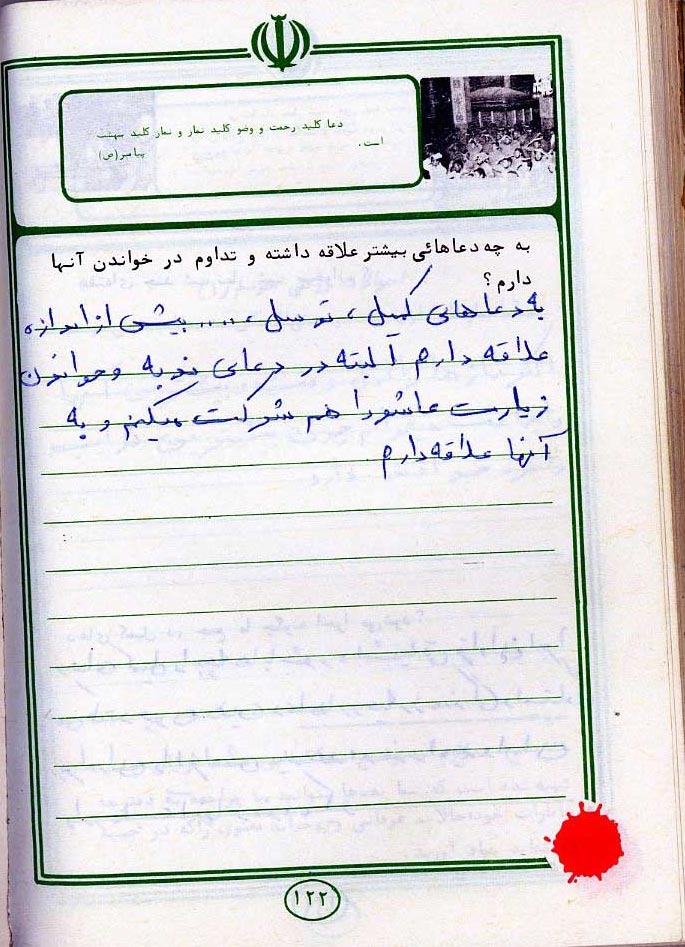 دعا کلید رحمت و وضو کلید نماز و نماز کلید بهشت
است.
پیامبر(ص)
به چه دعاهائی بیشتر علاقه داشته و تداوم در خواندن آنها
دارم؟
به دعاهای کمیل، توسل، .... بیش از اندازه
علاقه دارم البته در دعای ندبه و خواندن
زیارت عاشورا هم شرکت میکنم و به
آنها علاقه دارم
۱۲۲